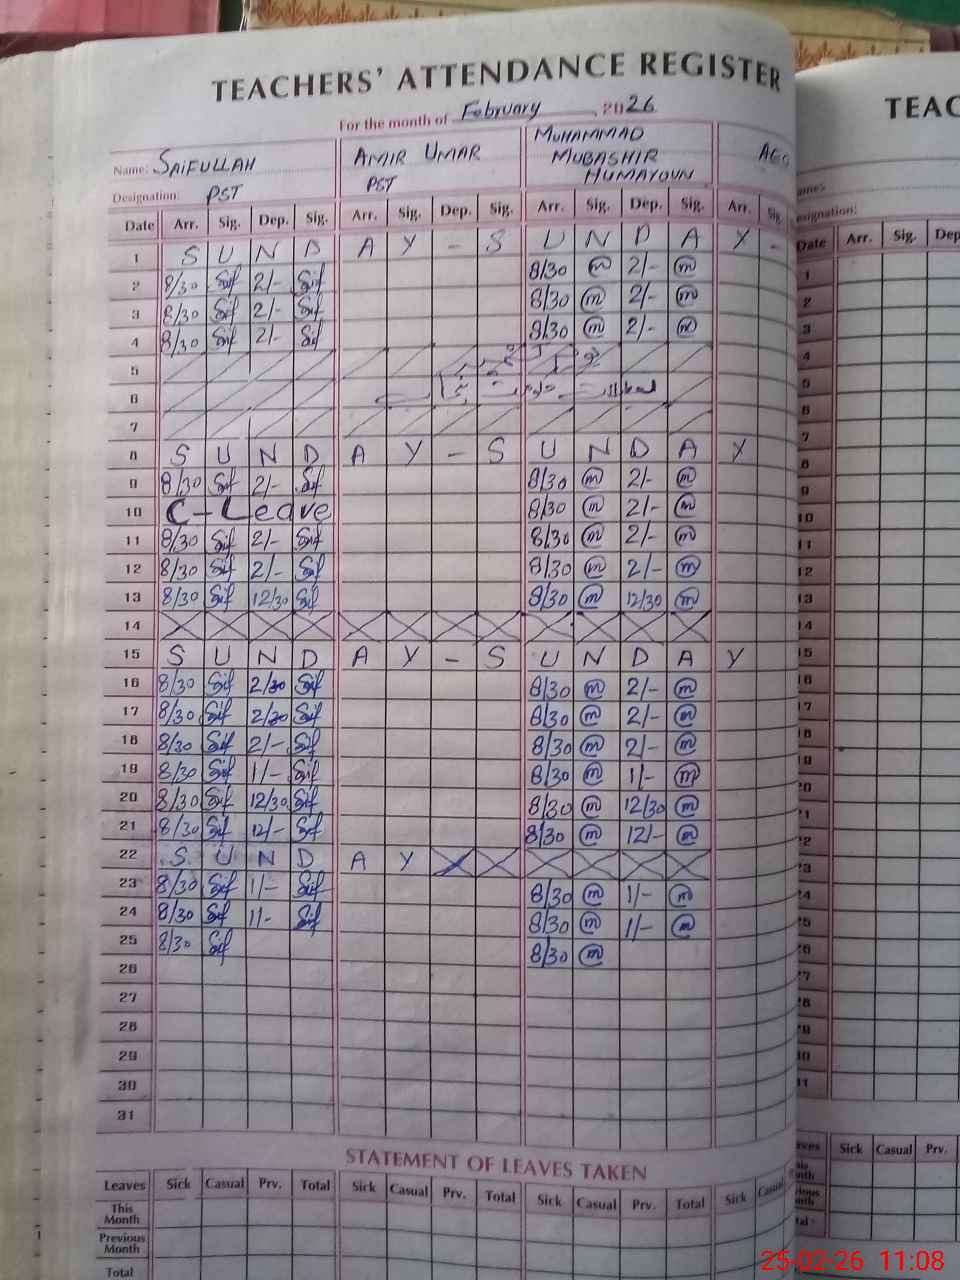 TEACHERS' ATTENDANCE REGISTER
For the month of February 2026
Name: SAIFULLAH AMIR UMAR MUHAMMAD MUBASHIR HUMAYOUN
Designation: PST PST
Date Arr. Sig. Dep. Sig. Arr. Sig. Dep. Sig. Arr. Sig. Dep. Sig. Arr. Sig.
1 S U N D A Y - S U N D A Y -
2 8/30 Sif 2/- Sif 8/30 m 2/- m
3 8/30 Sif 2/- Sif 8/30 m 2/- m
4 8/30 Sif 2/- Sif 8/30 m 2/- m
5
6
7
8 S U N D A Y - S U N D A Y
9 8/30 Sif 2/- Sif 8/30 m 2/- m
10 C - Leave 8/30 m 2/- m
11 8/30 Sif 2/- Sif 8/30 m 2/- m
12 8/30 Sif 2/- Sif 8/30 m 2/- m
13 8/30 Sif 12/30 Sif 8/30 m 12/30 m
14
15 S U N D A Y - S U N D A Y
16 8/30 Sif 2/30 Sif 8/30 m 2/- m
17 8/30 Sif 2/30 Sif 8/30 m 2/- m
18 8/30 Sif 2/- Sif 8/30 m 2/- m
19 8/30 Sif 1/- Sif 8/30 m 1/- m
20 8/30 Sif 12/30 Sif 8/30 m 12/30 m
21 8/30 Sif 12/- Sif 8/30 m 12/- m
22 S U N D A Y
23 8/30 Sif 1/- Sif 8/30 m 1/- m
24 8/30 Sif 1/- Sif 8/30 m 1/- m
25 8/30 Sif 8/30 m
26
27
28
29
30
31
STATEMENT OF LEAVES TAKEN
Leaves Sick Casual Prv. Total Sick Casual Prv. Total Sick Casual Prv. Total Sick Casual
This Month
Previous Month
Total
TEAC
Date Arr. Sig. Dep
Sick Casual Prv.
25-02-26 11:08